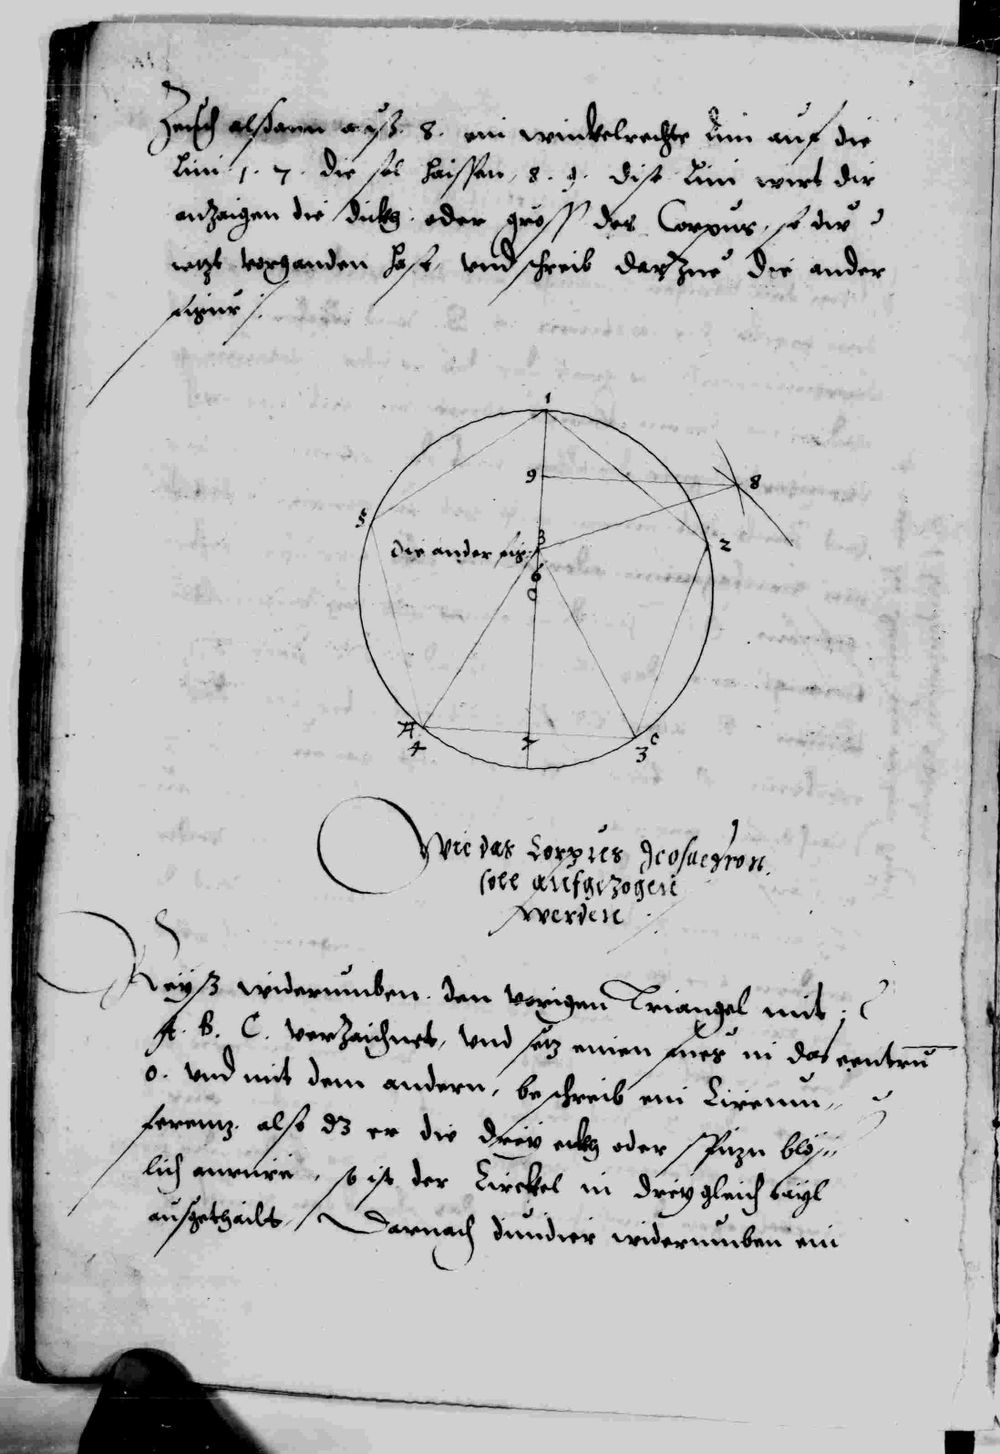 Zeuch alsdann auß. 8. ein winckelrechte Lini auf die
Lini 1. 7. die sol haissen, 8. 9. dise Lini wirt dir
anzaigen die dickh oder gröss des Corpus, so du
ietzt vorhanden hast, vnd schreib darzue die ander
figur /.
1
9
8
5
2
B
die ander fig:
6
0
A
4
7
3
C
Wie das Corpus Icosaedron
soll aufgezogen
werden
Reyß widerumben den vorigen Triangel mit
A. B. C. verzaichnet, vnd setz einen fues in das centrū
o. vnd mit dem andern, beschreib ein Circum¬
ferentz. also dz er die drey eckh oder spitzn blös¬
lich anrure, so ist der Circkel in drey gleich tayl
ausgethailt, Darnach diuidier widerumben ein